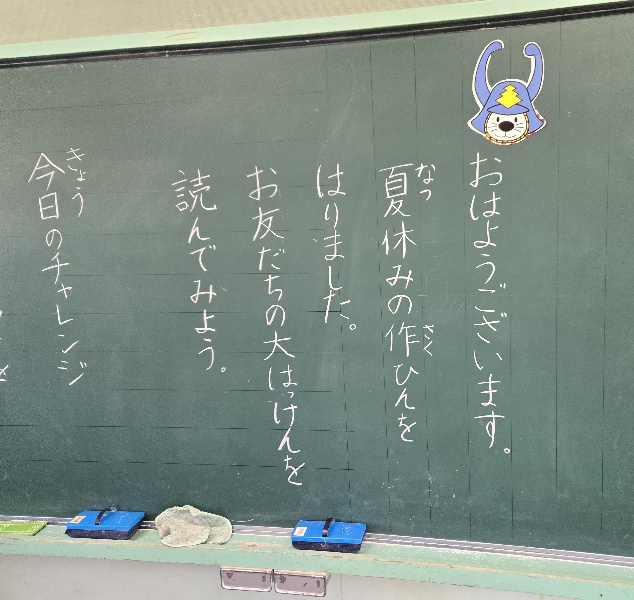 おはようございます。
夏休みの作ひんを
なつ
さく
はりました。
お友だちの大はっけんを
読んでみよう。
今日のチャレンジ
きょう